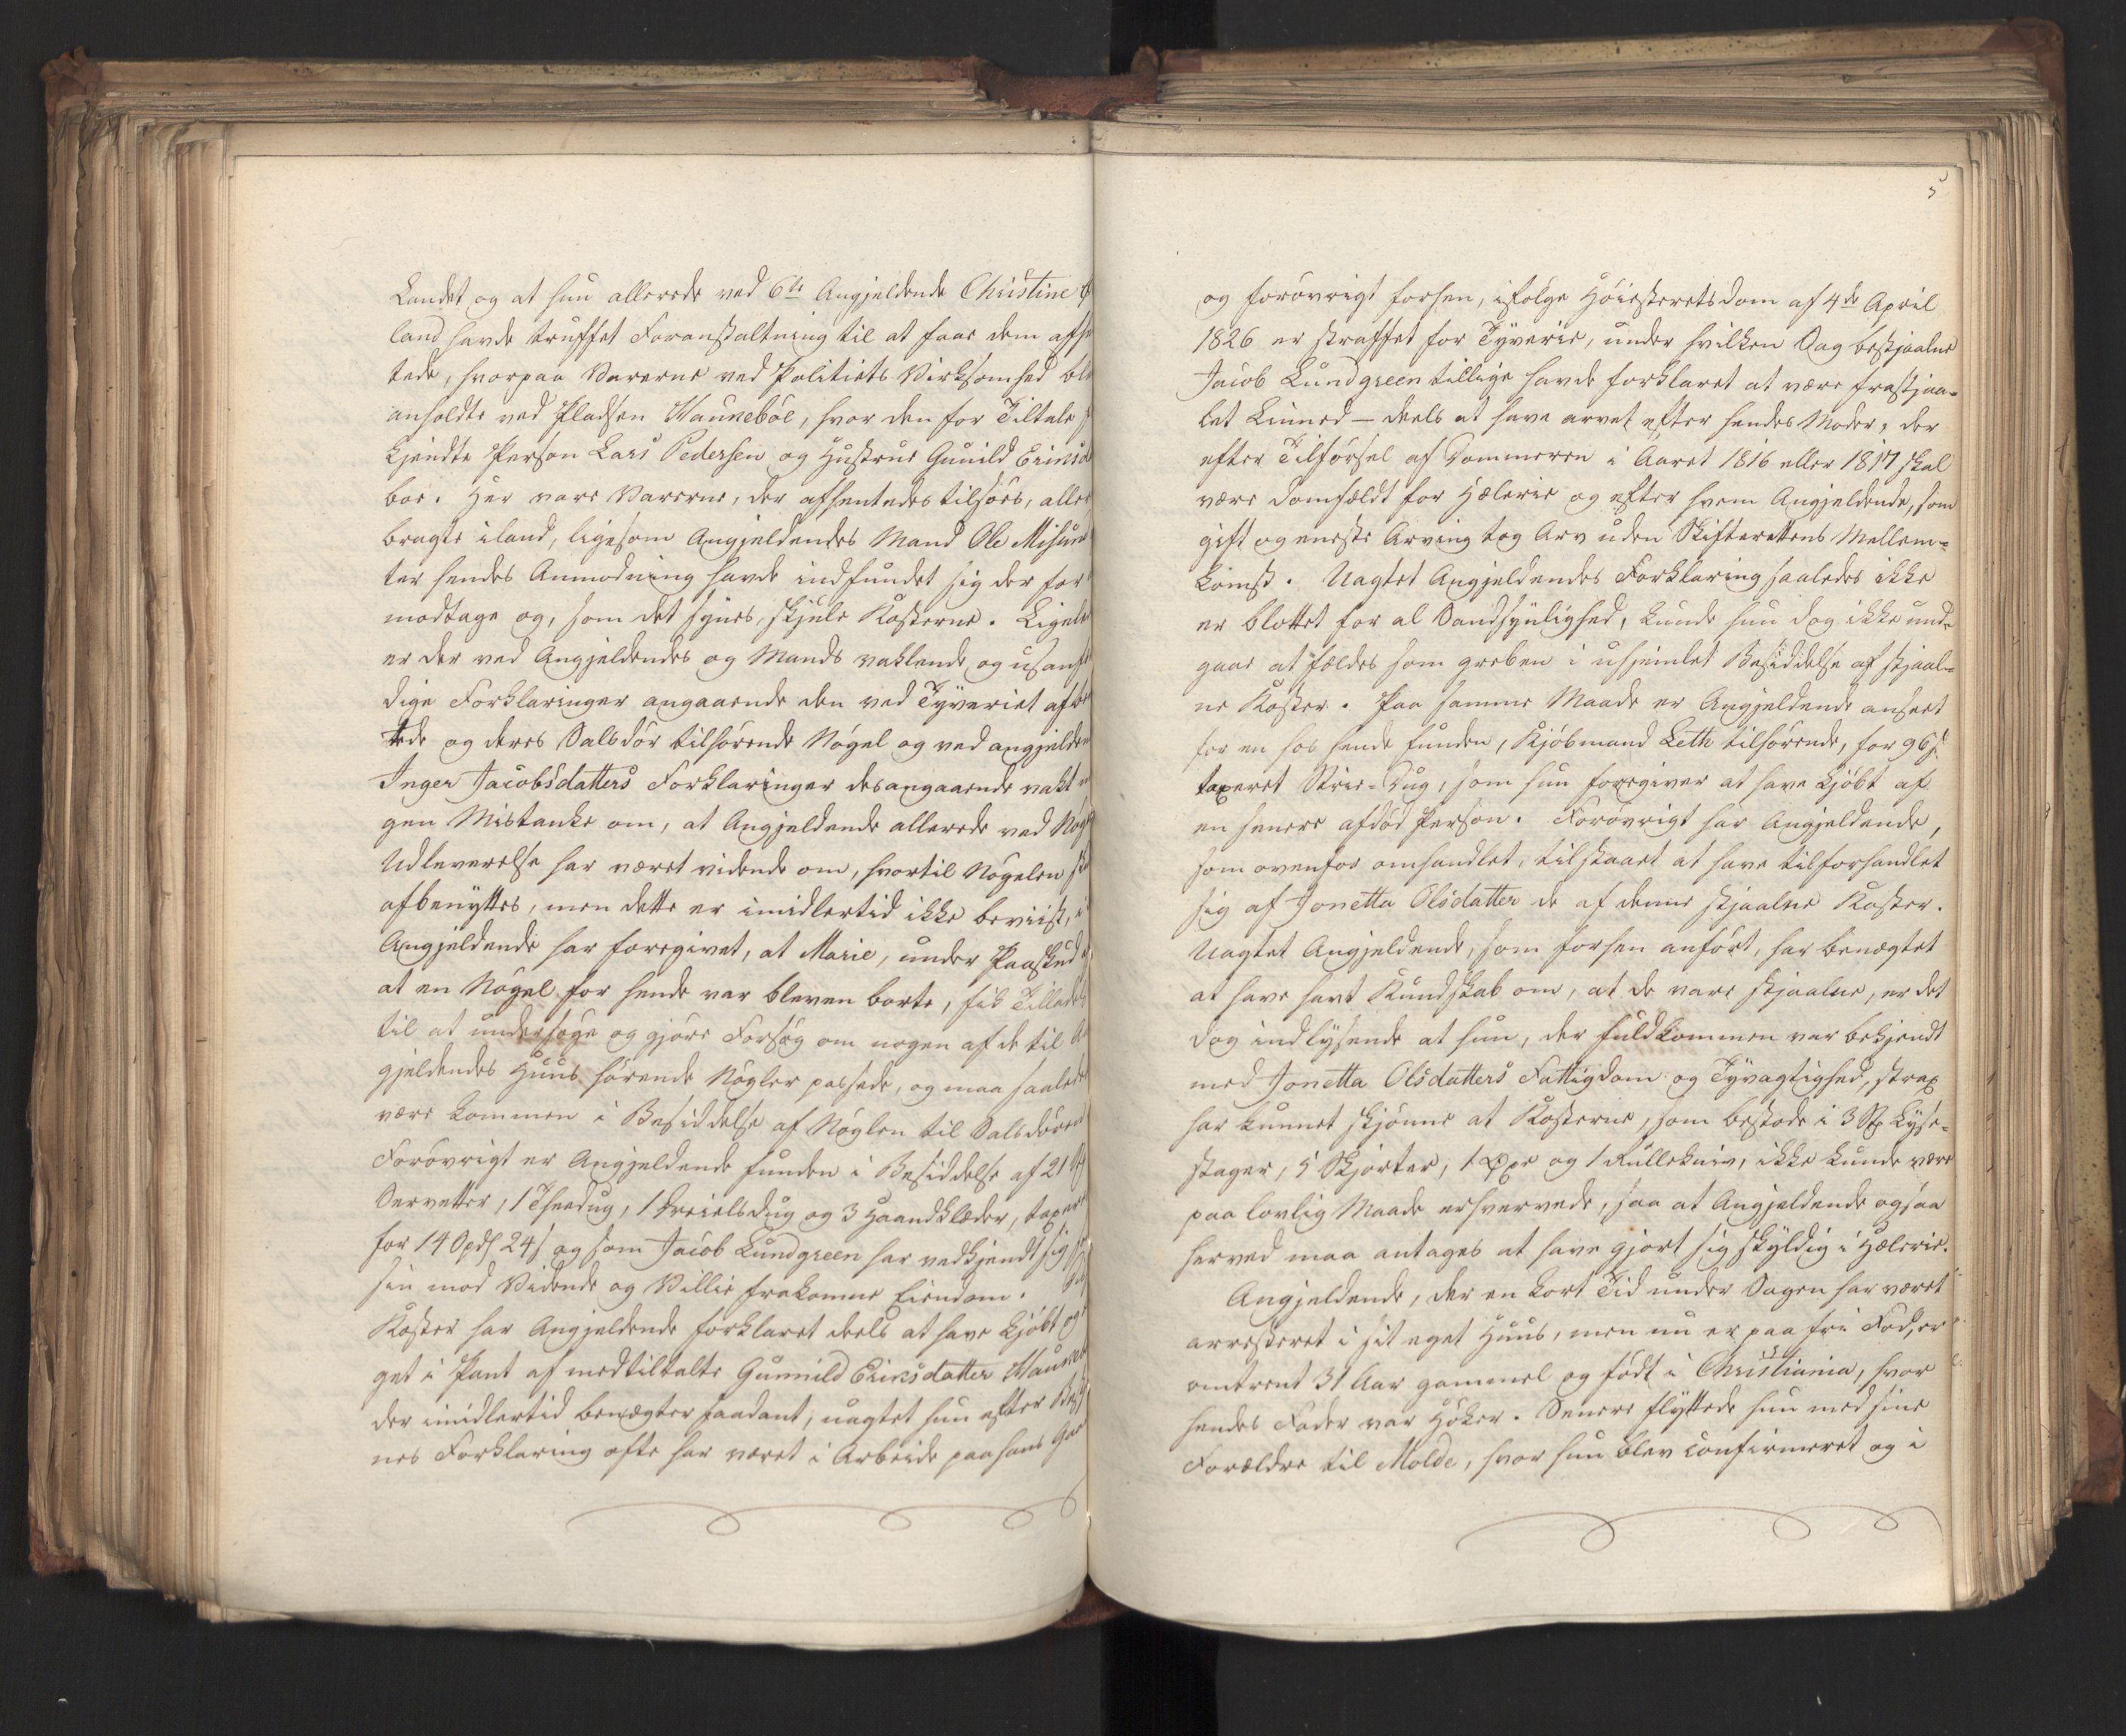 Landet og at hun allerede ved 6te Angjeldende Christine
land havde truffet Foranstaltning til at faae dem afhæn
tede, hvorpaa Varerne ved Politiets Virksomhed ble
anholdte ved Pladsen Haunebøe, hvor den for Tiltale
kjendte Person Lars Pedersen og Hustrue Gunild Eriksd
boe. Her vare Varerne, der afhentedes tilsøes, aller
bragte iland, ligesom Angjeldendes Mand Ole Misund
ter hendes Anmodning havde indfundet sig der for
modtage og, som det synes, skjule Kosterne. Ligele
er der ved Angjeldendes og Mands vaklende og usand
dige Forklaringer angaaende den ved Tyveriet afbe
tede og deres Salsdør tilhørende Nøgel og ved angjelden
Inger Jacobsdatters Forklaringer desangaaende vakt
gen Mistanke om, at Angjeldende allerede ved Nøg
Udleverelse har været vidende om, hvortil Nøgelen
afbenyttes, men dette er imidlertid ikke beviist,
Angjeldende har foregivet, at Marie, under Paaskud
at en Nøgel for hende var bleven borte, fik Tillade
til at undersøge og gjøre Forsøg om nogen af de til
gjeldendes Huus hørende Nøgler passede, og maa saalede
være kommen i Besiddelse af Nøglen til Salsdøren
Forøvrigt er Angjeldende funden i Besiddelse af 21
Servetter, 1 Theedug, 1 Dreielsdug og 3 Haandklæder, taxere
for 14 Spd 24 s og som Jacob Lundgreen har vedkjendt sig
sin mod Vidende og Villie frakomne Eiendom.
Koster har Angjeldende forklaret deels at have kjøbt og
get i Pant af medtiltalte Gunnild Eriksdatter Haune
der imidlertid benægter saadant, uagtet hun efter
nes Forklaring ofte har været i Arbeide paa hans Gaa
5
og forøvrigt forhen, ifølge Høiesteretsdom af 4de April
1826 er straffet for Tyverie, under hvilken Sag bestjaalne
Jacob Lundgreen tillige havde forklaret at være frastjaa-
let Linned – deels at have arvet efter hendes Moder, der
efter Tilførsel af Dommeren i Aaret 1816 eller 1817 skal
være domfældt for Hælerie og efter hvem Angjeldende, som
gift og eneste Arving tog Arv uden Skifterettens Mellem-
komst. Uagtet Angjeldendes Forklaring saaledes ikke
er blottet for al Sandsynlighed, kunde hun dog ikke und-
gaae at fældes som greben i uhjemlet Besiddelse af stjaal-
ne Koster. Paa samme Maade er Angjeldende anseet
for en hos hende funden, Kjøbmand Leth tilhørende, for 96 s
taxeret Strie-Dug, som hun foregiver at have kjøbt af
en senere afdød Person. Forøvrigt har Angjeldende,
som ovenfor omhandlet, tilstaaet at have tilforhandlet
sig af Jonetta Olsdatter de af denne stjaalne Koster.
Uagtet Angjeldende, som forhen anført, har benægtet
at have havt Kundskab om, at de vare stjaalne, er det
dog indlysende at hun, der fuldkommen var bekjendt
med Jonetta Olsdatters Fattigdom og Tyvagtighed, strax
har kunnet skjønne at Kosterne, som bestode i 3 Stk Lyse-
stager, 5 Skjorter, 1 Øxe og 1 Rullekniv, ikke kunde være
paa lovlig Maade erhvervede, saa at Angjeldende ogsaa
herved maa antages at have gjort sig skyldig i Hælerie.
Angjeldende, der en kort Tid under Sagen har været
arresteret i sit eget Huus, men nu er paa fri Fod, er
omtrent 31 Aar gammel og født i Christiania, hvor
hendes Fader var Høker. Senere flyttede hun med sine
Forældre til Molde, hvor hun blev confirmeret og i